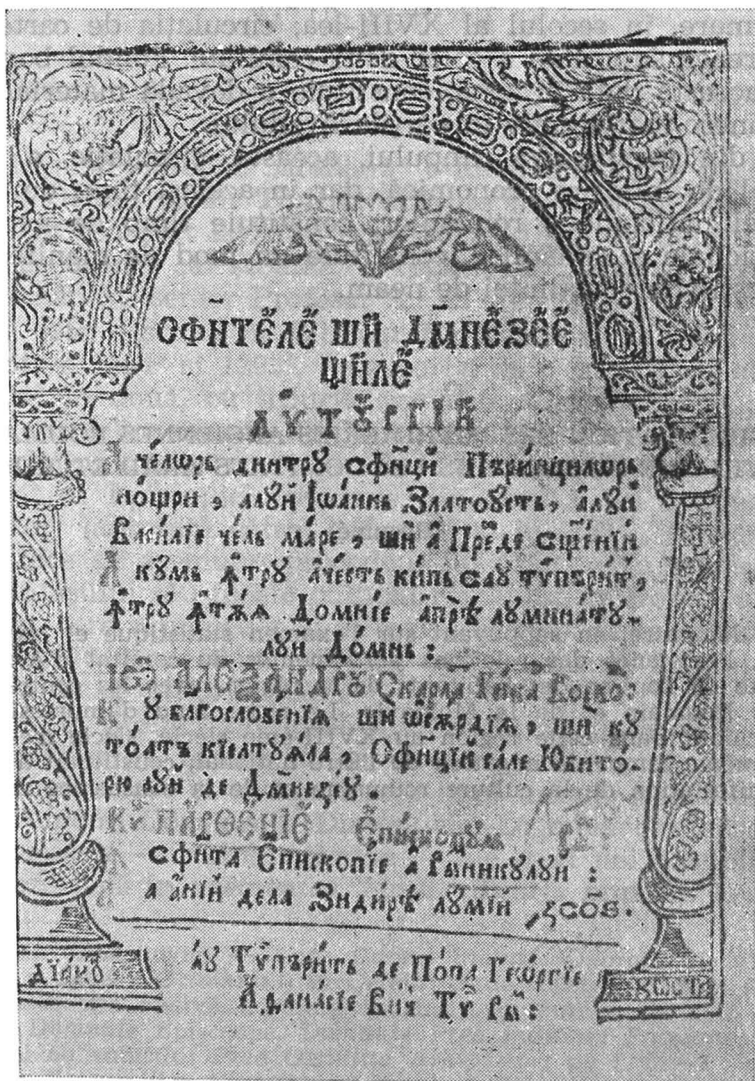 СФ҃НТЕ́ЛЕ́ ШИ ДМ҃НЕЗЕ́Е́
ЩИЛЕ́
ЛѴТꙊРГІЙ
А че́лѡрь динтрꙋ Сфи́нцїй Пъри́нцилѡрь
но́щри, алꙋй Іѡа́ннь Златоу́сть, а́лꙋй
Васи́лїе че́ль ма́ре, ши а̀ Пре́де Сщ҃е́нїй
А кꙋмь ꙟтрꙋ аче́сть кипь сау тѷпъри́ть,
ꙟтрꙋ ꙟтѫѧ Домнїе а̀прѣ лꙋмина́тꙋ-
лꙋй До́мнь:
ІѠ҃ АЛЕѮАНДРꙊ Скарла́ Ги́ка Воево́:
Кꙋ благословенїѧ ши ѡсѫрдїѧ, ши кꙋ
то́атъ кїелтꙋѧла, Сфи́нцїй сале Юбито́-
рю луй де Дм҃незеꙋ.
Кѵ҃ ПАРѲЕ́НІЕ́ Е́пи́скопуль Ры́:
сфи́нта Епископїе а̀ Ры́мникꙋлꙋй:
а а́нїй дела Зиди́рѣ лꙋ́мїй ҂зсо҃ѕ.
аꙋ Тѵпъри́ть де По́па Гео́ргїе
А́ѳана́сїе Вич Тѵ̀ Ры́: